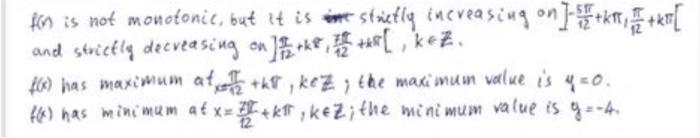 f(x) is not monotonic, but it is strictly increasing on ]-5π/12+kπ, π/12+kπ[
and strictly decreasing on ]π/12+kπ, 7π/12+kπ[, k∈Z.
f(x) has maximum at x=π/12+kπ, k∈Z; the maximum value is y=0.
f(x) has minimum at x=7π/12+kπ, k∈Z; the minimum value is y=-4.